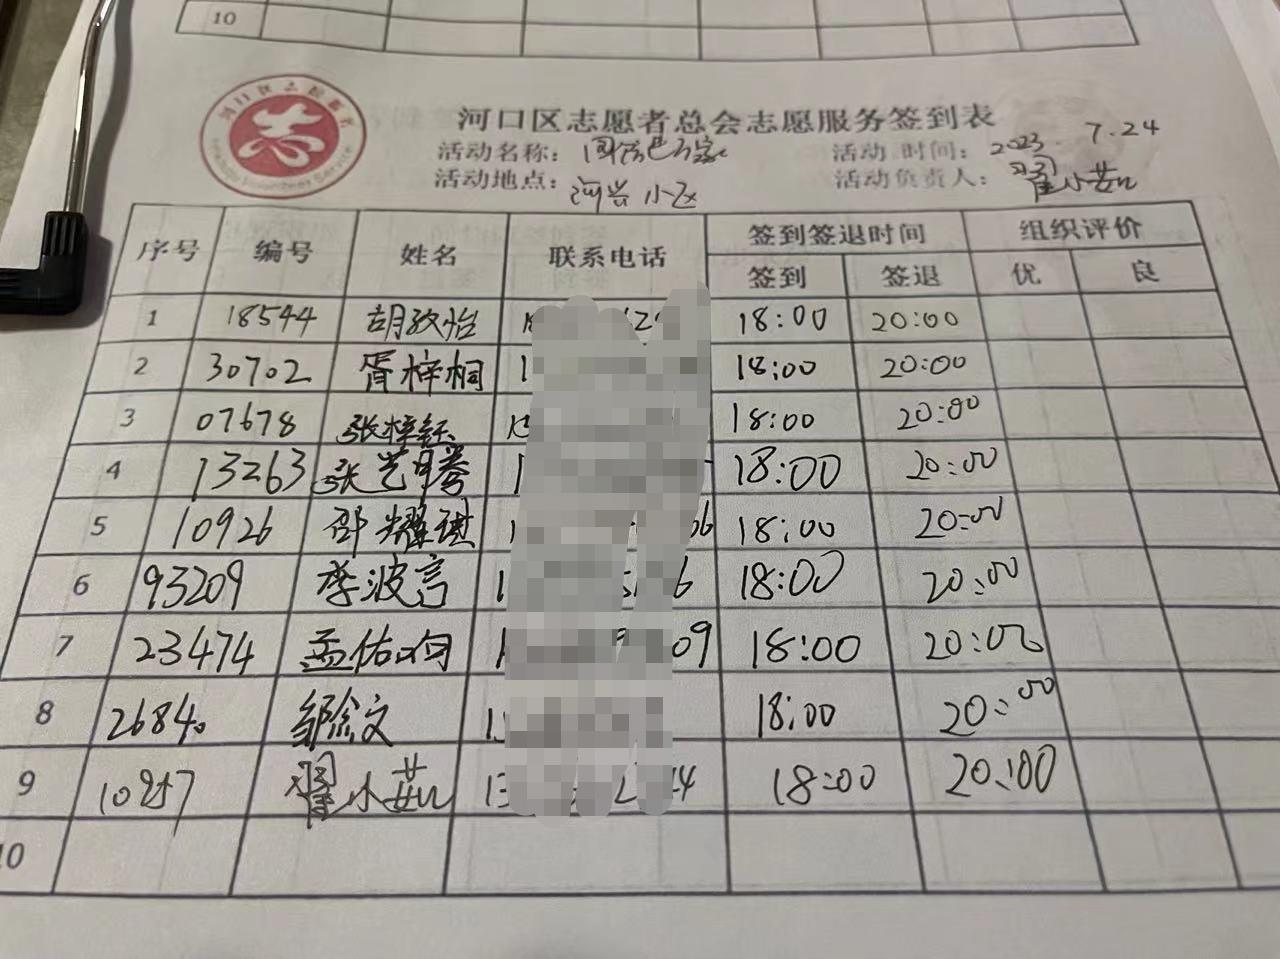 10
河口区志愿者总会志愿服务签到表
活动名称： 活动时间：2023.7.24
活动地点：河兴小区 活动负责人：翟小茹
序号 编号 姓名 联系电话 签到签退时间 组织评价
签到 签退 优 良
1 18544 胡玫怡 18:00 20:00
2 30702 胥梓桐 1 18:00 20:00
3 07678 张梓钰 18:00 20:00
4 13263 张艺 1 18:00 20:00
5 10926 邵耀琪 1 06 18:00 20:00
6 93209 李波言 1 6 18:00 20:00
7 23474 孟佑 1 09 18:00 20:00
8 2684 邹念文 1 18:00 20:00
9 10957 翟小茹 13 4 18:00 20:00
10